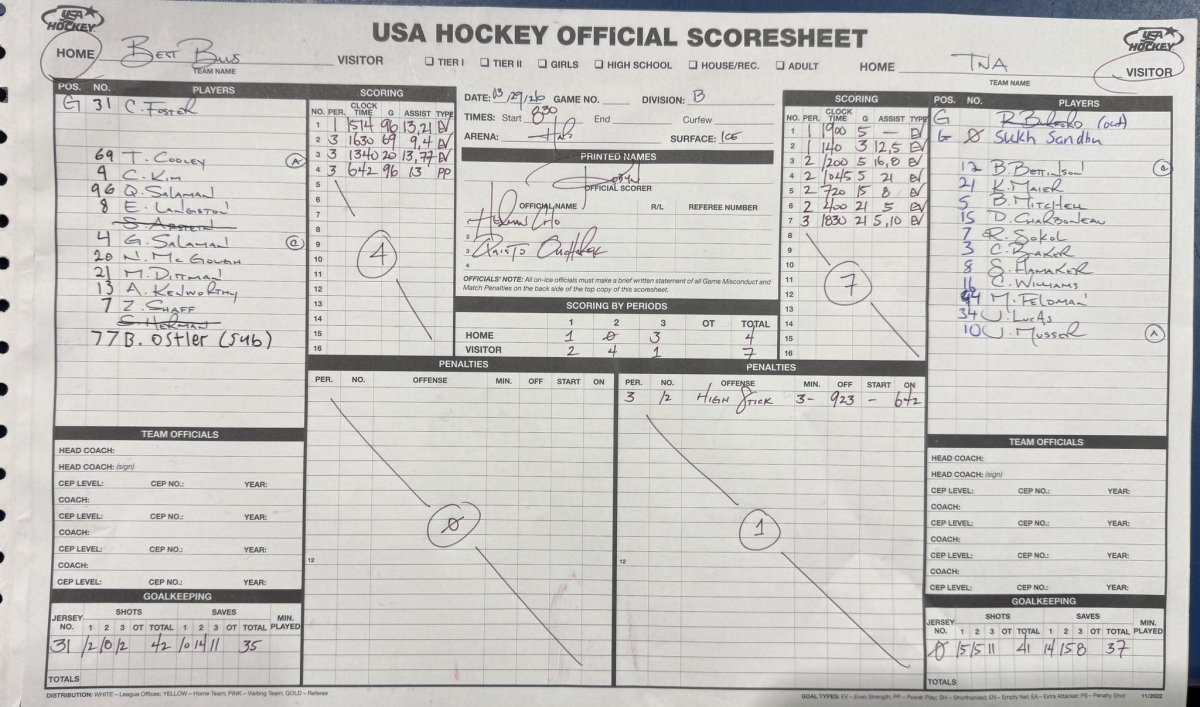 USA HOCKEY
USA HOCKEY OFFICIAL SCORESHEET
USA HOCKEY
HOME Best Bus VISITOR
TEAM NAME
TIER I TIER II GIRLS HIGH SCHOOL HOUSE/REC. ADULT
HOME TNA VISITOR
TEAM NAME
POS. NO. PLAYERS
G 31 C. Foster
69 T. Cooley A
9 C. Kim
96 Q. Salaman
8 E. Langston
S. Apstein
4 G. Salaman C
20 N. McGough
21 M. Dittman
13 A. Kenworthy
7 Z. Shaff
S. Herman
77 B. Ostler (sub)
SCORING
NO. PER. CLOCK TIME G ASSIST TYPE
1 1 1514 96 13,21 EV
2 3 1630 69 9,4 EV
3 3 1340 20 13,77 EV
4 3 642 96 13 PP
5
6
7
8
9
10
11
12
13
14
15
16
4
DATE: 03/29/26 GAME NO. DIVISION: B
TIMES: Start 830 End Curfew
ARENA: SURFACE: ICE
PRINTED NAMES
OFFICIAL SCORER
OFFICIAL NAME R/L REFEREE NUMBER
2
3
4
OFFICIALS' NOTE: All on-ice officials must make a brief written statement of all Game Misconduct and
Match Penalties on the back side of the top copy of this scoresheet.
SCORING BY PERIODS
1 2 3 OT TOTAL
HOME 1 0 3 4
VISITOR 2 4 1 7
SCORING
NO. PER. CLOCK TIME G ASSIST TYPE
1 1 1900 5 — EV
2 1 140 3 12,5 EV
3 2 1200 5 16,8 EV
4 2 1045 5 21 EV
5 2 720 15 8 EV
6 2 400 21 5 EV
7 3 1830 21 5,10 EV
8
9
10
11
12
13
14
15
16
7
POS. NO. PLAYERS
G (out)
G 0 Sukh Sandhu
12 B. Bettinson C
21 K. Maier
5 B. Mitchell
15 D. Charboneau
7 R. Sokol
3 C. Baker
8 S. Hamaker
16 C. Williams
94 M. Feldman
34 J. Lucas
10 J. Musser A
PENALTIES
PER. NO. OFFENSE MIN. OFF START ON
12
0
PENALTIES
PER. NO. OFFENSE MIN. OFF START ON
3 12 High Stick 3- 923 - 642
12
1
TEAM OFFICIALS
HEAD COACH:
HEAD COACH: (sign)
CEP LEVEL: CEP NO.: YEAR:
COACH:
CEP LEVEL: CEP NO.: YEAR:
COACH:
CEP LEVEL: CEP NO.: YEAR:
COACH:
CEP LEVEL: CEP NO.: YEAR:
GOALKEEPING
JERSEY NO. SHOTS SAVES MIN. PLAYED
1 2 3 OT TOTAL 1 2 3 OT TOTAL
31 12 18 12 42 10 14 11 35
TOTALS
TEAM OFFICIALS
HEAD COACH:
HEAD COACH: (sign)
CEP LEVEL: CEP NO.: YEAR:
COACH:
CEP LEVEL: CEP NO.: YEAR:
COACH:
CEP LEVEL: CEP NO.: YEAR:
COACH:
CEP LEVEL: CEP NO.: YEAR:
GOALKEEPING
JERSEY NO. SHOTS SAVES MIN. PLAYED
1 2 3 OT TOTAL 1 2 3 OT TOTAL
0 15 15 11 41 14 15 8 37
TOTALS
DISTRIBUTION: WHITE – League Offices; YELLOW – Home Team; PINK – Visiting Team; GOLD – Referee
GOAL TYPES: EV – Even Strength; PP – Power Play; SH – Shorthanded; EN – Empty Net; EA – Extra Attacker; PS – Penalty Shot 11/2022